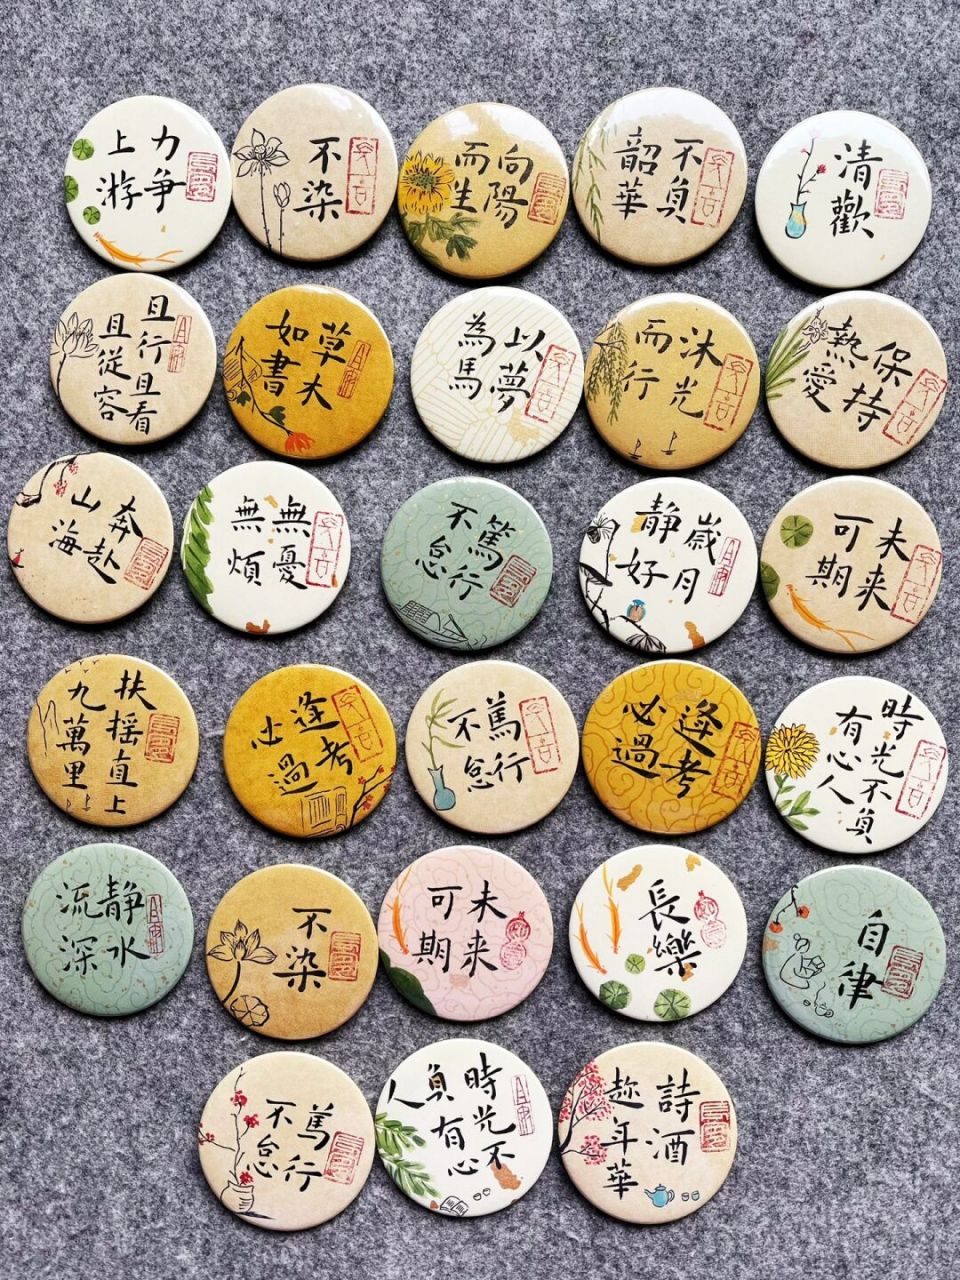 力爭
上游
不染
向陽
而生
不負
韶華
清歡
且行且看
且從容
草木
如書
以夢
為馬
沐光
而行
保持
熱愛
奔赴
山海
無憂
無煩
篤行
不怠
歲月
静好
未来
可期
扶摇直上
九萬里
逢考
必過
篤行
不怠
逢考
必過
時光不負
有心人
静水
流深
不染
未来
可期
長樂
自律
篤行
不怠
時光不
負有心
人
詩酒
趁年華